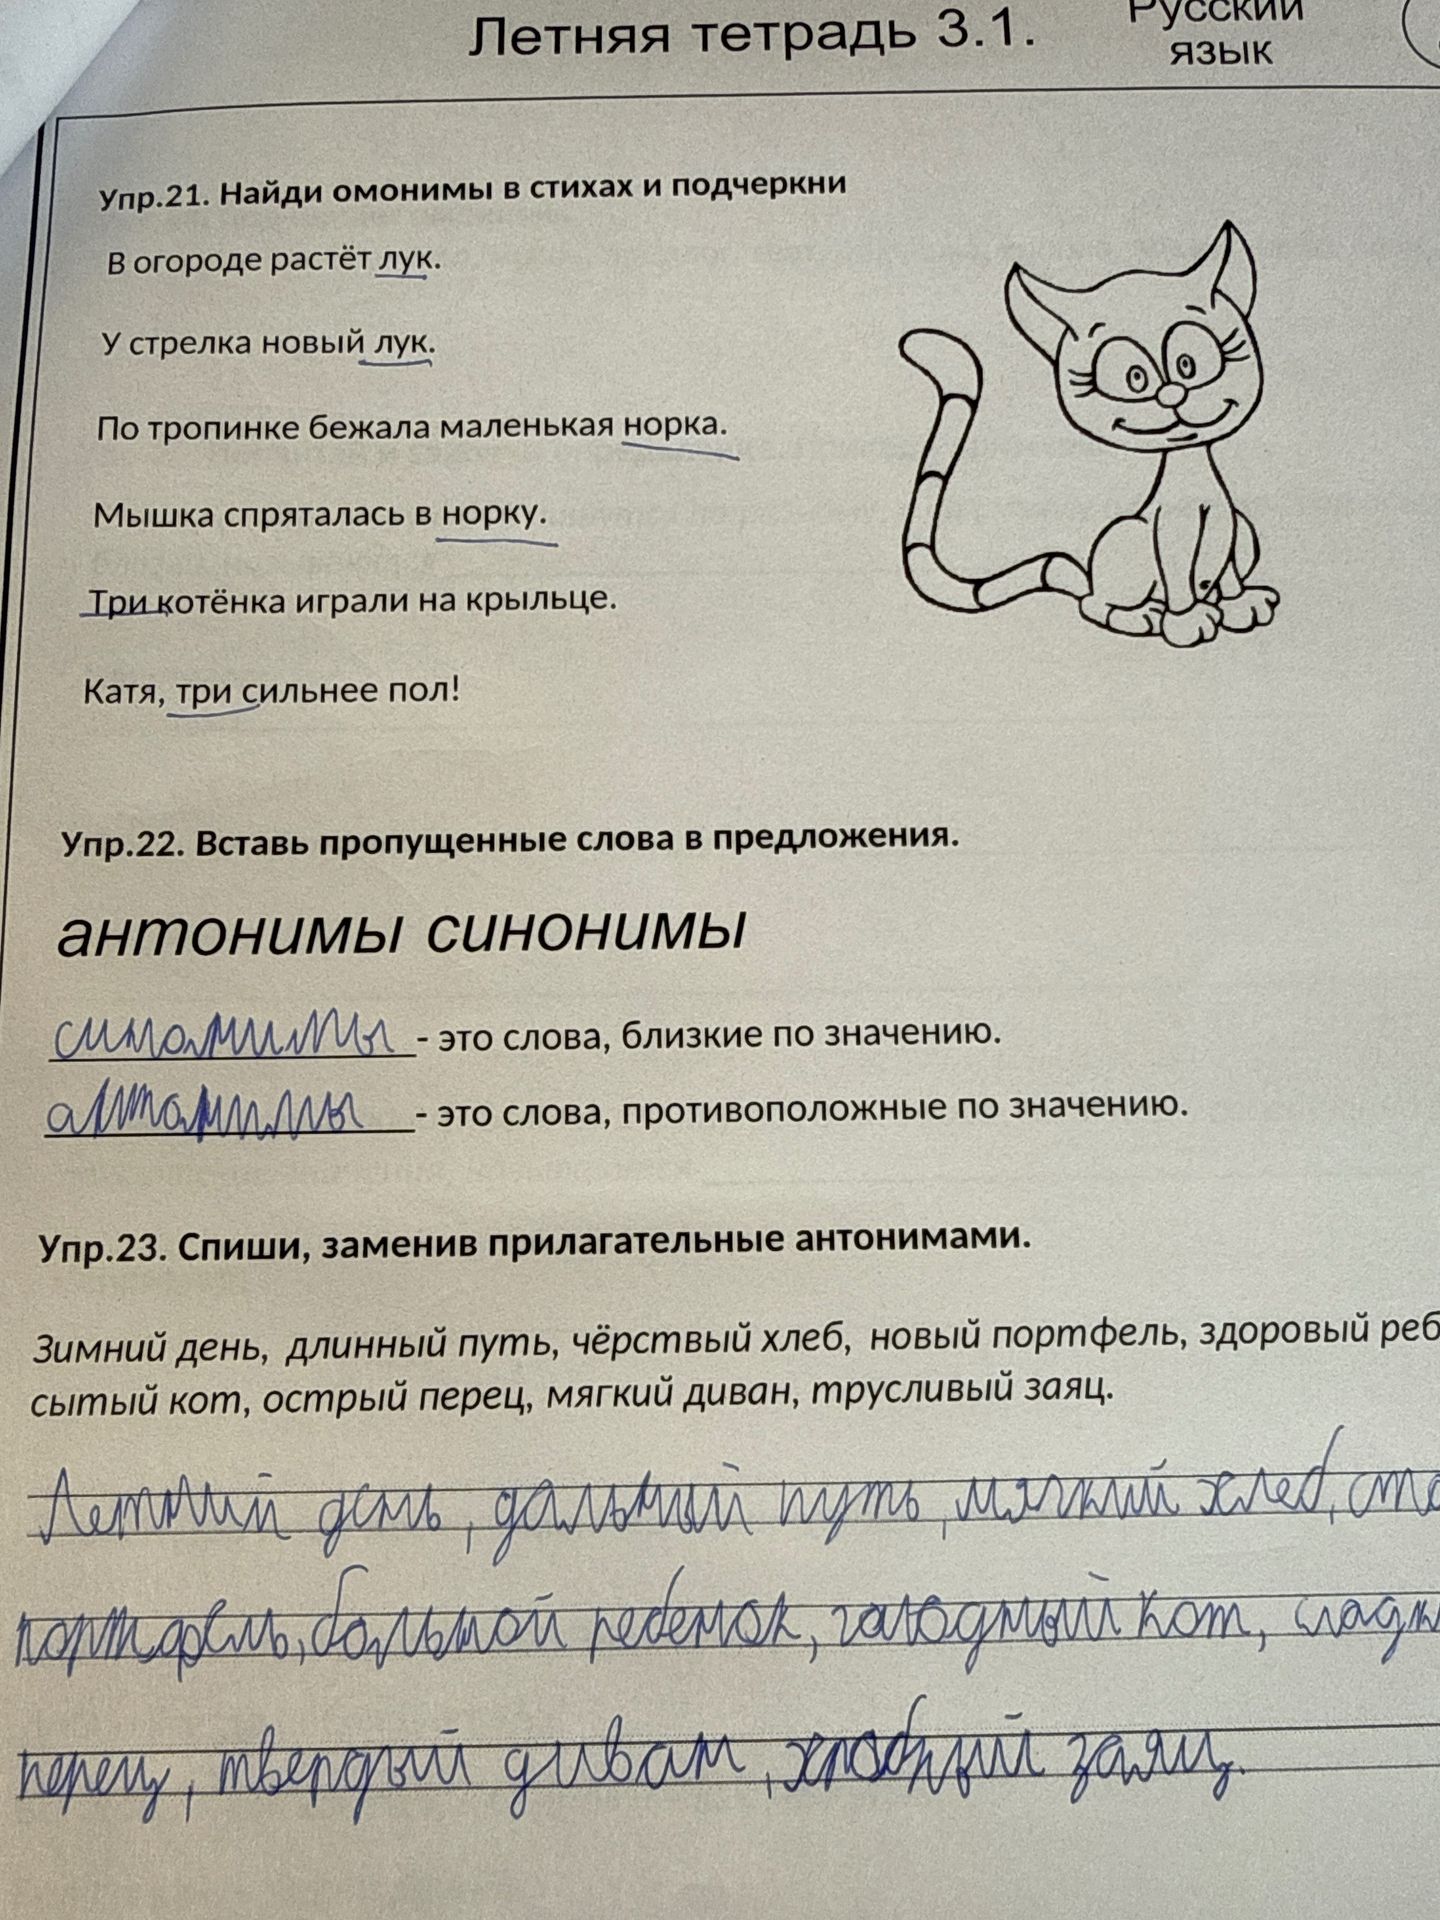 Летняя тетрадь 3.1.
Русский
язык
Упр.21. Найди омонимы в стихах и подчеркни
В огороде растёт лук.
У стрелка новый лук.
По тропинке бежала маленькая норка.
Мышка спряталась в норку.
Три котёнка играли на крыльце.
Катя, три сильнее пол!
Упр.22. Вставь пропущенные слова в предложения.
антонимы синонимы
синонимы - это слова, близкие по значению.
антонимы - это слова, противоположные по значению.
Упр.23. Спиши, заменив прилагательные антонимами.
Зимний день, длинный путь, чёрствый хлеб, новый портфель, здоровый реб
сытый кот, острый перец, мягкий диван, трусливый заяц.
Летний день, дальний путь, мягкий хлеб, ста
портфель, больной ребенок, голодный кот, сладк
перец, твердый диван, храбрый заяц.